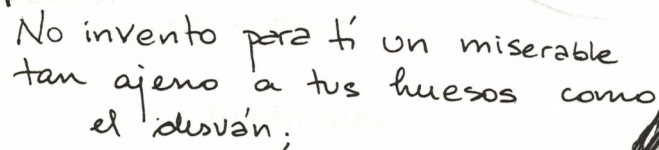 No invento para tí un miserable
tan ajeno a tus huesos como
el desván;